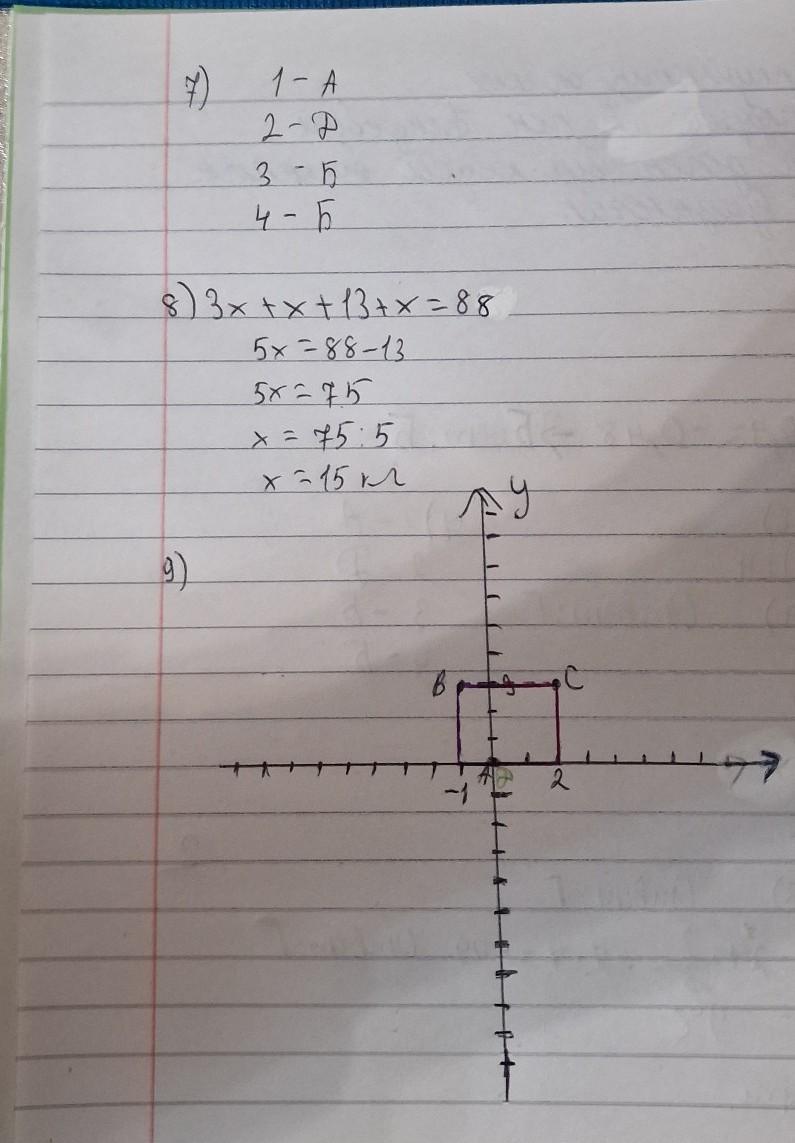 7) 1 - А
2 - Д
3 - Б
4 - Б
8) 3x + x + 13 + x = 88
5x = 88 - 13
5x = 75
x = 75 : 5
x = 15 кг
y
9)
B 3 C
-1 A 2